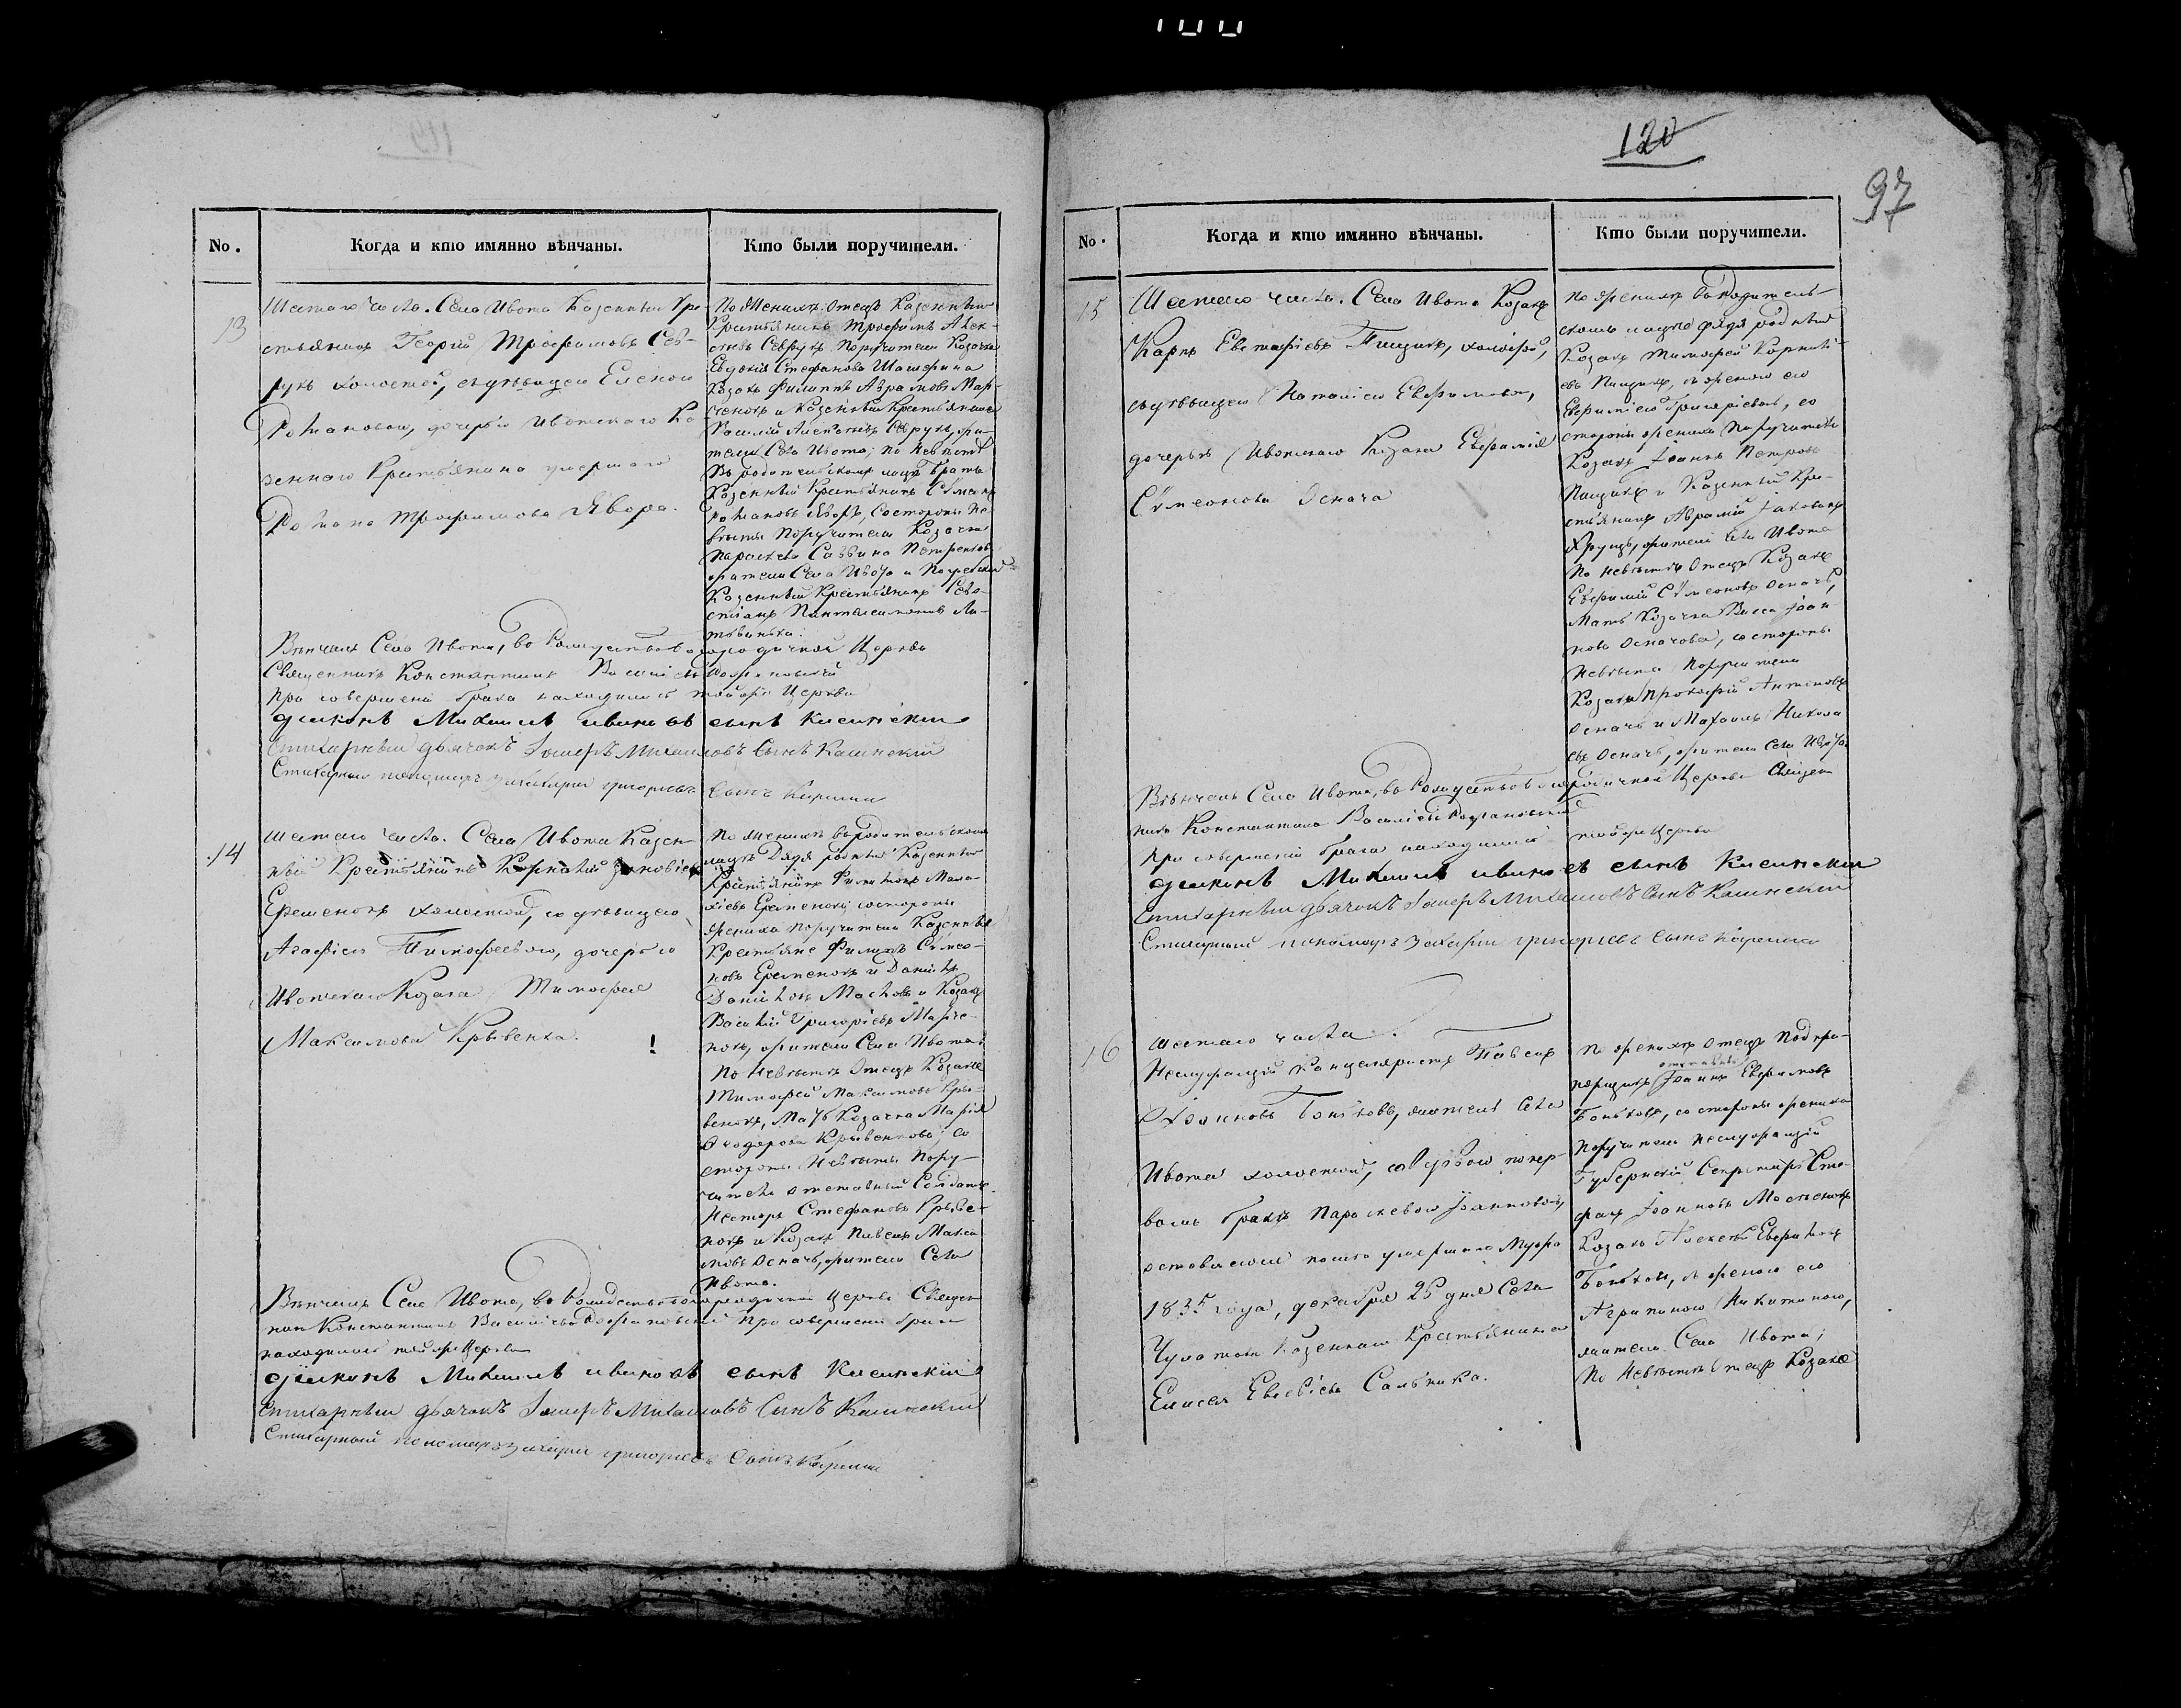 120
97
No.
Когда и кто имянно вѣнчаны.
Кто были поручители.
13
Шестаго числа. Села Ивота Казенный Кре-
стьянинъ Георгій Трофимовъ Сев-
рукъ холостой, съ дѣвицею Еленою
Романовою, дочерью Ивотскаго Ка
зеннаго Крестьянина умершаго
Романа Трофимова Явора.
По Женихѣ Отецъ Казенный
Крестьянинъ Трофимъ Алек-
сѣевъ Севрукъ Поручители Козачка
Евдокія Стефанова
Козакъ Филиппъ Абрамовъ Мар-
ченокъ и Казенный Крестьянинъ
Василій Алексѣевъ Севрукъ, жи-
тели Села Ивота; по Невѣстѣ
Въ родительскомъ мѣстѣ братъ
Казенный Крестьянинъ Сѵмеонъ
Романовъ Яворъ, Со стороны Не-
вѣсты Поручители Козачка
Параскева Саввина Петренкова
жители Села Ивота и
Казенный Крестьянинъ Сева-
стіанъ Пантелеимоновъ Ли-
Вѣнчалъ Села Ивота, во Рождествобогородичной Церкви
Священникъ Константинъ Василіевъ
При совершеніи брака находились той же Церкви
діяконъ Михаилъ ивановъ сынъ Калинскій
Стихарный дьячокъ Михаиловъ Сынъ Калинскій
Стихарный пономарь захарій григорьевъ Сынъ
14
Шестаго числа. Села Ивота Казен-
ный Крестьянинъ Корнилій Зиновіевъ
Еременокъ холостой, съ дѣвицею
Агафіею Тимофеевою, дочерью
Ивотскаго Козака Тимофея
Максимова Крывенка. !
По Женихѣ въ родительскомъ
мѣстѣ Дядя родный Казенный
Крестьянинъ Филимонъ Мала-
хіевъ Еременокъ; со стороны
жениха поручители Казенные
Крестьяне Филипъ Сѵмео-
новъ Еременокъ и Даніилъ
Даніиловъ и Козакъ
Василій Григоріевъ Марче-
нокъ, жители Села Ивота;
По Невѣстѣ Отецъ Козакъ
Тимофей Максимовъ Кры-
венокъ, Мать Козачка Марія
Ѳеодорова Крывенкова; со
стороны Невѣсты Пору-
чители отставный Солдатъ
Несторъ Стефановъ Крыве-
нокъ и Козакъ Павелъ Макси
мовъ Осначъ, жители Села
Ивота.
Вѣнчалъ Села Ивота, во Рождествобогородичной Церкви Священ
никъ Константинъ Василіевъ При совершеніи брака
находились той же Церкви
діяконъ Михаилъ ивановъ сынъ Калинскій
Стихарный дьячокъ Михаиловъ Сынъ Калинскій
Стихарный пономарь захарій григорьевъ Сынъ
No.
Когда и кто имянно вѣнчаны.
Кто были поручители.
15
Шестаго числа. Села Ивота Козакъ
Карпъ Евстафіевъ Пищикъ, холостой,
съ дѣвицею Наталіею Евфимовою,
дочерью Ивотскаго Козака Евфимія
Сѵмеонова Оснача
По Женихѣ Въ родитель-
скомъ мѣстѣ дядя родный
Козакъ Тимофей Корнилі-
евъ Пищикъ, съ женою его
Евфиміею Григоріевою, со
стороны жениха Поручители
Козакъ Іоаннъ Петровъ
Пищикъ и Казенный Кре-
стьянинъ Аврамій Іаковлевъ
жители Села Ивота
По невѣстѣ Отецъ Козакъ
Евфимій Сѵмеоновъ Осначъ,
Мать Козачка Васса Іоан-
нова Осначова, со стороны
Невѣсты Поручители
Козаки Прокофій Антоновъ
Осначъ и Михаилъ Никола
евъ Осначъ, жители Села Ивота.
Вѣнчалъ Села Ивота, во Рождествобогородичной Церкви Священ
никъ Константинъ Василіевъ
При совершеніи брака находились той же Церкви
діяконъ Михаилъ ивановъ сынъ Калинскій
Стихарный дьячокъ Михаиловъ Сынъ Калинскій
Стихарный пономарь Захарій григорьевъ Сынъ
16
Шестаго числа.
Неслужащій Канцеляристъ Павелъ
Іоанновъ житель Села
Ивота холостой, со вдовою по пер-
вомъ бракѣ Параскевою Іоанновою,
оставшеюся послѣ умершаго Мужа
1835 года, декабря 25 дня Села
Казеннаго Крестьянина
Елисея Евсевіева Сальника.
По женихѣ Отецъ Подпра-
порщикъ отставный Іоаннъ Евфимовъ
со стороны жениха
Поручители неслужащій
Губернскій Секретарь Сте-
фанъ Іоанновъ
Козакъ Алексѣй Евфимовъ
съ женою его
Агрипиною Никитиною,
жители Села Ивота;
По Невѣстѣ Отецъ Козакъ